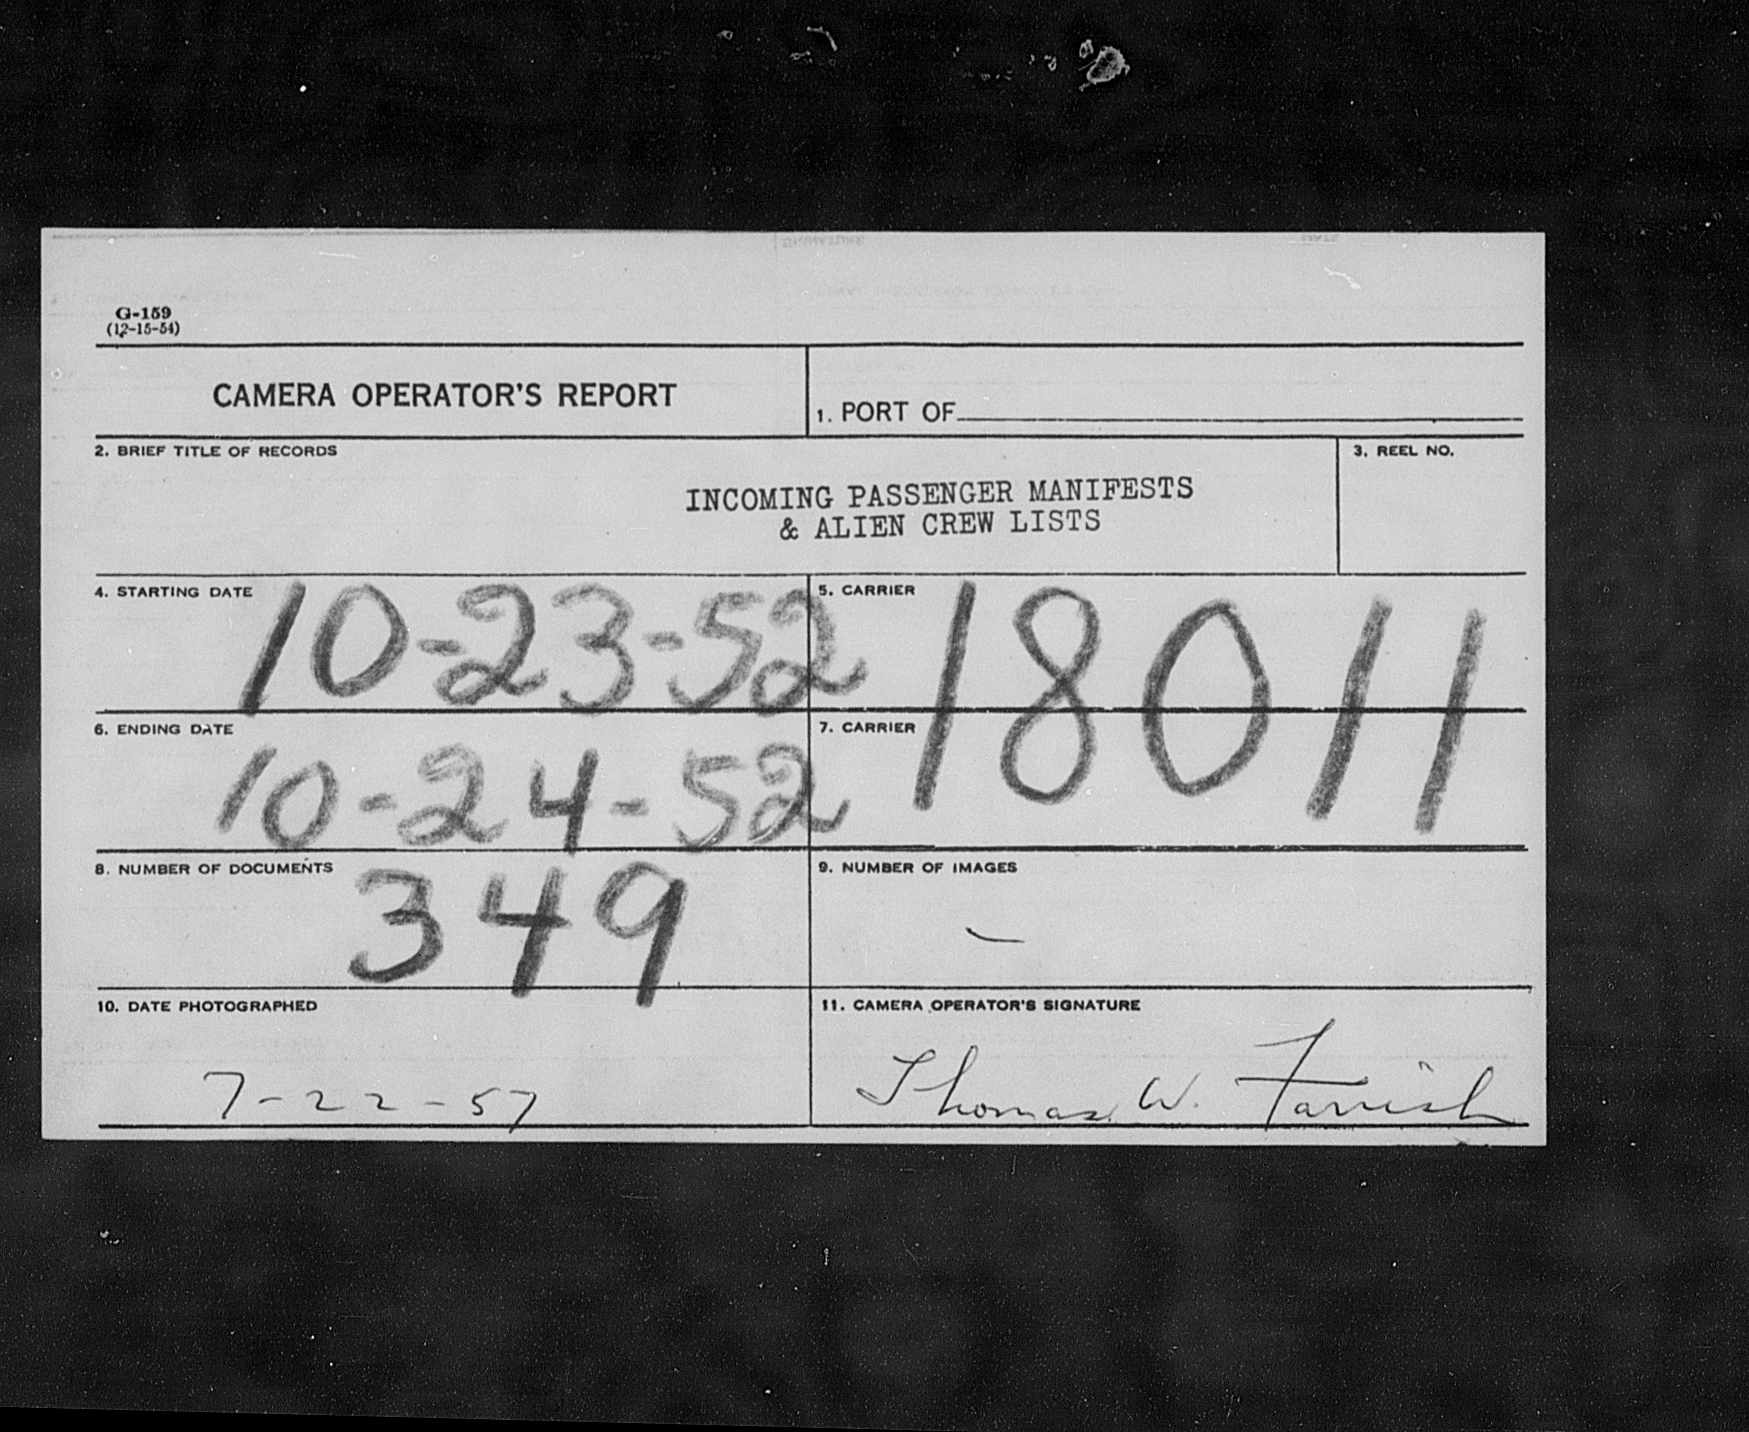 G-159
(12-15-54)
CAMERA OPERATOR'S REPORT
1. PORT OF
2. BRIEF TITLE OF RECORDS
INCOMING PASSENGER MANIFESTS
& ALIEN CREW LISTS
3. REEL NO.
4. STARTING DATE
10-23-52
5. CARRIER
18011
6. ENDING DATE
10-24-52
7. CARRIER
8. NUMBER OF DOCUMENTS
349
9. NUMBER OF IMAGES
-
10. DATE PHOTOGRAPHED
7-22-57
11. CAMERA OPERATOR'S SIGNATURE
Thomas W.